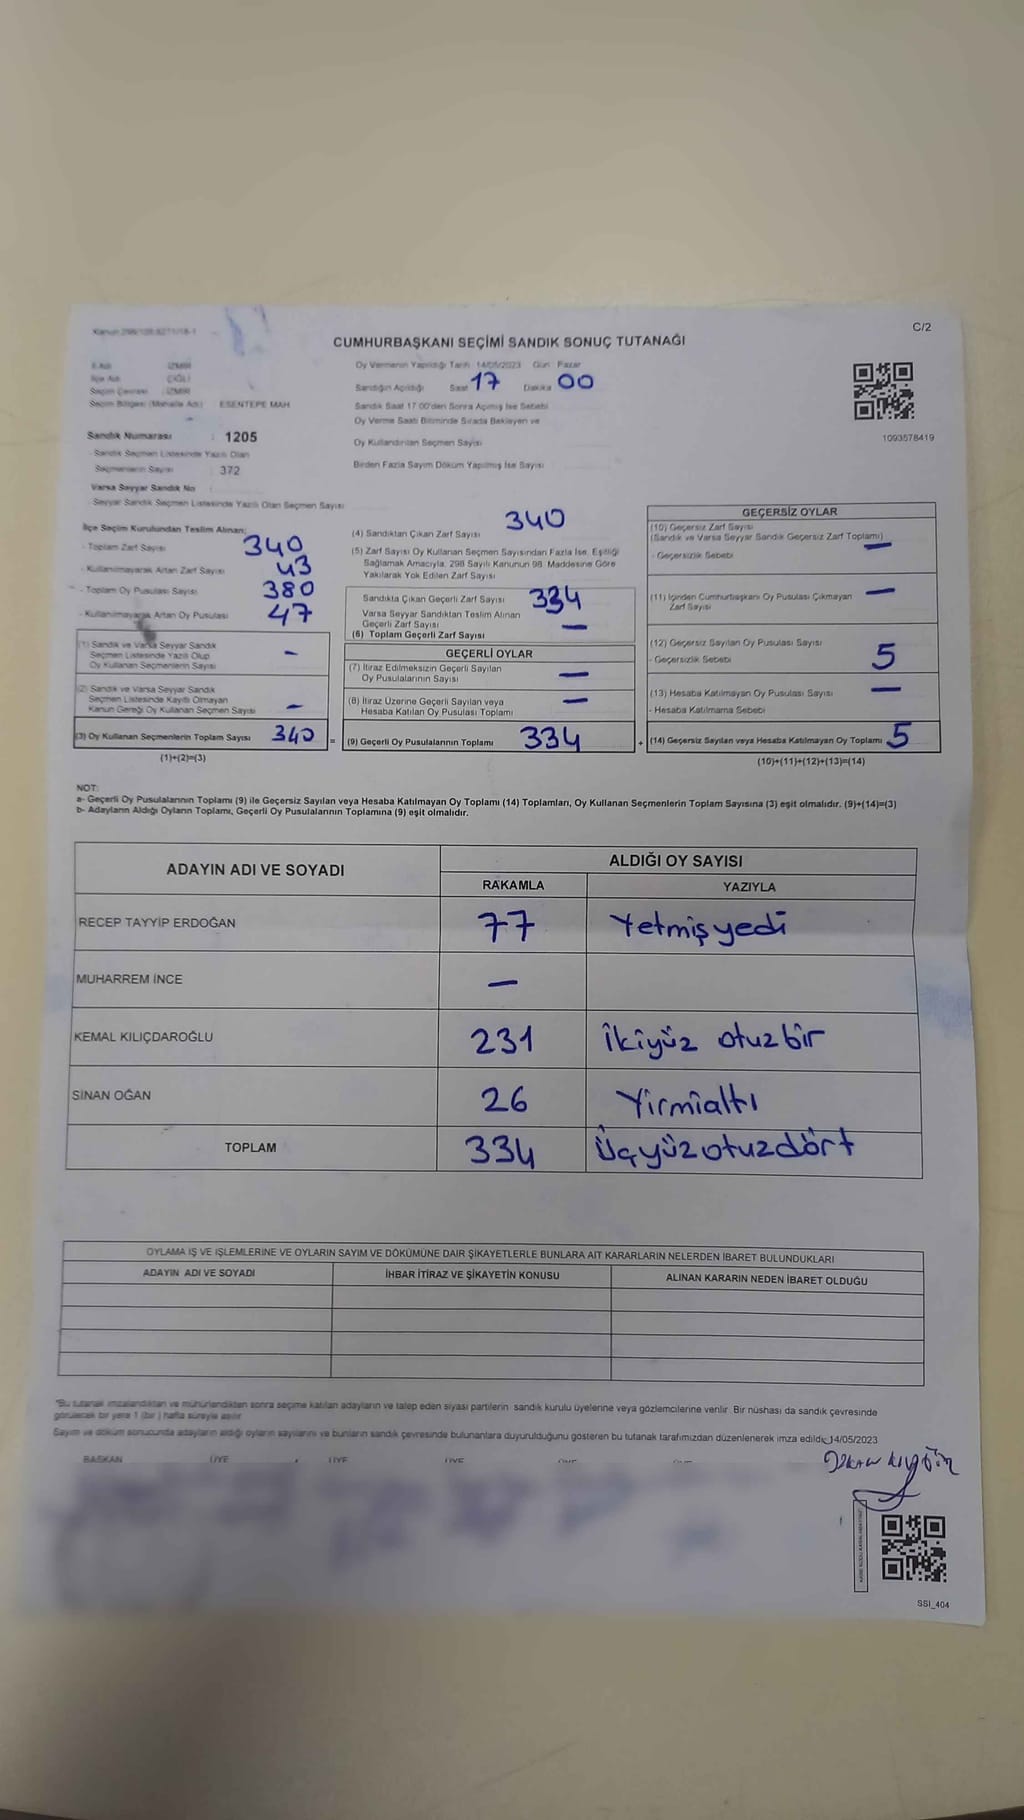 C/2
CUMHURBAŞKANI SEÇİMİ SANDIK SONUÇ TUTANAĞI
İl Adı İZMİR
İlçe Adı ÇİĞLİ
Seçim Çevresi : İZMİR
Seçim Bölgesi (Mahalle Adı) : ESENTEPE MAH.
Sandık Numarası : 1205
Sandık Seçmen Listesinde Yazılı Olan
Seçmenlerin Sayısı : 372
Varsa Seyyar Sandık No
Seyyar Sandık Seçmen Listesinde Yazılı Olan Seçmen Sayısı
Oy Vermenin Yapıldığı Tarih 14/05/2023 Gün Pazar
Sandığın Açıldığı Saat 17 Dakika 00
Sandık Saat 17.00'den Sonra Açılmış İse Sebebi
Oy Verme Saati Bitiminde Sırada Bekleyen ve
Oy Kullandırılan Seçmen Sayısı
Birden Fazla Sayım Döküm Yapılmış İse Sayısı
1093578419
İlçe Seçim Kurulundan Teslim Alınan:
- Toplam Zarf Sayısı 340
- Kullanılmayarak Artan Zarf Sayısı 43
- Toplam Oy Pusulası Sayısı 380
- Kullanılmayarak Artan Oy Pusulası 47
(1) Sandık ve Varsa Seyyar Sandık
Seçmen Listesinde Yazılı Olup
Oy Kullanan Seçmenlerin Sayısı -
(2) Sandık ve Varsa Seyyar Sandık
Seçmen Listesinde Kayıtlı Olmayan
Kanun Gereği Oy Kullanan Seçmen Sayısı -
(3) Oy Kullanan Seçmenlerin Toplam Sayısı 340 =
(1)+(2)=(3)
(4) Sandıktan Çıkan Zarf Sayısı 340
(5) Zarf Sayısı Oy Kullanan Seçmen Sayısından Fazla İse, Eşitliği
Sağlamak Amacıyla, 298 Sayılı Kanunun 98. Maddesine Göre
Yakılarak Yok Edilen Zarf Sayısı
Sandıkta Çıkan Geçerli Zarf Sayısı 334
Varsa Seyyar Sandıktan Teslim Alınan
Geçerli Zarf Sayısı -
(6) Toplam Geçerli Zarf Sayısı
GEÇERLİ OYLAR
(7) İtiraz Edilmeksizin Geçerli Sayılan
Oy Pusulalarının Sayısı -
(8) İtiraz Üzerine Geçerli Sayılan veya
Hesaba Katılan Oy Pusulası Toplamı -
(9) Geçerli Oy Pusulalarının Toplamı 334 +
GEÇERSİZ OYLAR
(10) Geçersiz Zarf Sayısı
(Sandık ve Varsa Seyyar Sandık Geçersiz Zarf Toplamı) -
- Geçersizlik Sebebi
(11) İçinden Cumhurbaşkanı Oy Pusulası Çıkmayan
Zarf Sayısı -
(12) Geçersiz Sayılan Oy Pusulası Sayısı
- Geçersizlik Sebebi 5
(13) Hesaba Katılmayan Oy Pusulası Sayısı -
- Hesaba Katılmama Sebebi
(14) Geçersiz Sayılan veya Hesaba Katılmayan Oy Toplamı 5
(10)+(11)+(12)+(13)=(14)
NOT:
a- Geçerli Oy Pusulalarının Toplamı (9) ile Geçersiz Sayılan veya Hesaba Katılmayan Oy Toplamı (14) Toplamları, Oy Kullanan Seçmenlerin Toplam Sayısına (3) eşit olmalıdır. (9)+(14)=(3)
b- Adayların Aldığı Oyların Toplamı, Geçerli Oy Pusulalarının Toplamına (9) eşit olmalıdır.
ADAYIN ADI VE SOYADI ALDIĞI OY SAYISI
RAKAMLA YAZIYLA
RECEP TAYYİP ERDOĞAN 77 Yetmiş yedi
MUHARREM İNCE -
KEMAL KILIÇDAROĞLU 231 İkiyüz otuzbir
SİNAN OĞAN 26 Yirmialtı
TOPLAM 334 Üçyüzotuzdört
OYLAMA İŞ VE İŞLEMLERİNE VE OYLARIN SAYIM VE DÖKÜMÜNE DAİR ŞİKAYETLERLE BUNLARA AİT KARARLARIN NELERDEN İBARET BULUNDUKLARI
ADAYIN ADI VE SOYADI İHBAR İTİRAZ VE ŞİKAYETİN KONUSU ALINAN KARARIN NEDEN İBARET OLDUĞU
"Bu tutanak imzalandıktan ve mühürlendikten sonra seçime katılan adayların ve talep eden siyasi partilerin sandık kurulu üyelerine veya gözlemcilerine verilir. Bir nüshası da sandık çevresinde
görülecek bir yere 1 (bir ) hafta süreyle asılır
Sayım ve döküm sonucunda adayların aldığı oyların sayılarını ve bunların sandık çevresinde bulunanlara duyurulduğunu gösteren bu tutanak tarafımızdan düzenlenerek imza edildi. 14/05/2023
BAŞKAN ÜYE ÜYE ÜYE
SSI_404